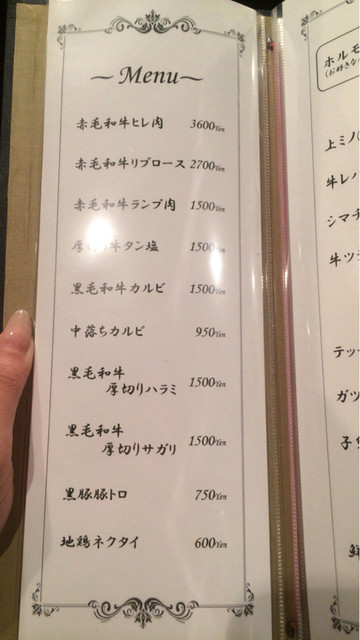 ～Menu～
赤毛和牛ヒレ肉 3600Yen
赤毛和牛リブロース 2700Yen
赤毛和牛ランプ肉 1500Yen
厚切り牛タン塩 1500Yen
黒毛和牛カルビ 1500Yen
中落ちカルビ 950Yen
黒毛和牛
厚切りハラミ 1500Yen
黒毛和牛
厚切りサガリ 1500Yen
黒豚豚トロ 750Yen
地鶏ネクタイ 600Yen
ホルモ
(お好きな
上ミノ(
牛レバ
シマチ
牛ツラ
テッ
ガツ
子